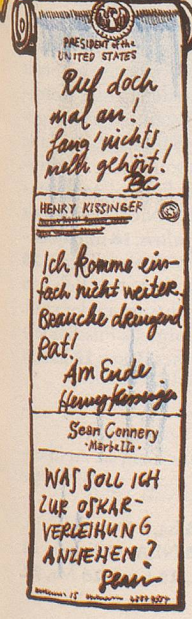 PRESIDENT of the
UNITED STATES
Ruf doch
mal an!
Lang' nichts
mehr gehört!
BC
HENRY KISSINGER
Ich komme ein-
fach nicht weiter.
Brauche dringend
Rat!
Am Ende
Henry Kissinger
Sean Connery
·Marbella·
WAS SOLL ICH
ZUR OSKAR-
VERLEIHUNG
ANZIEHEN?
Sean